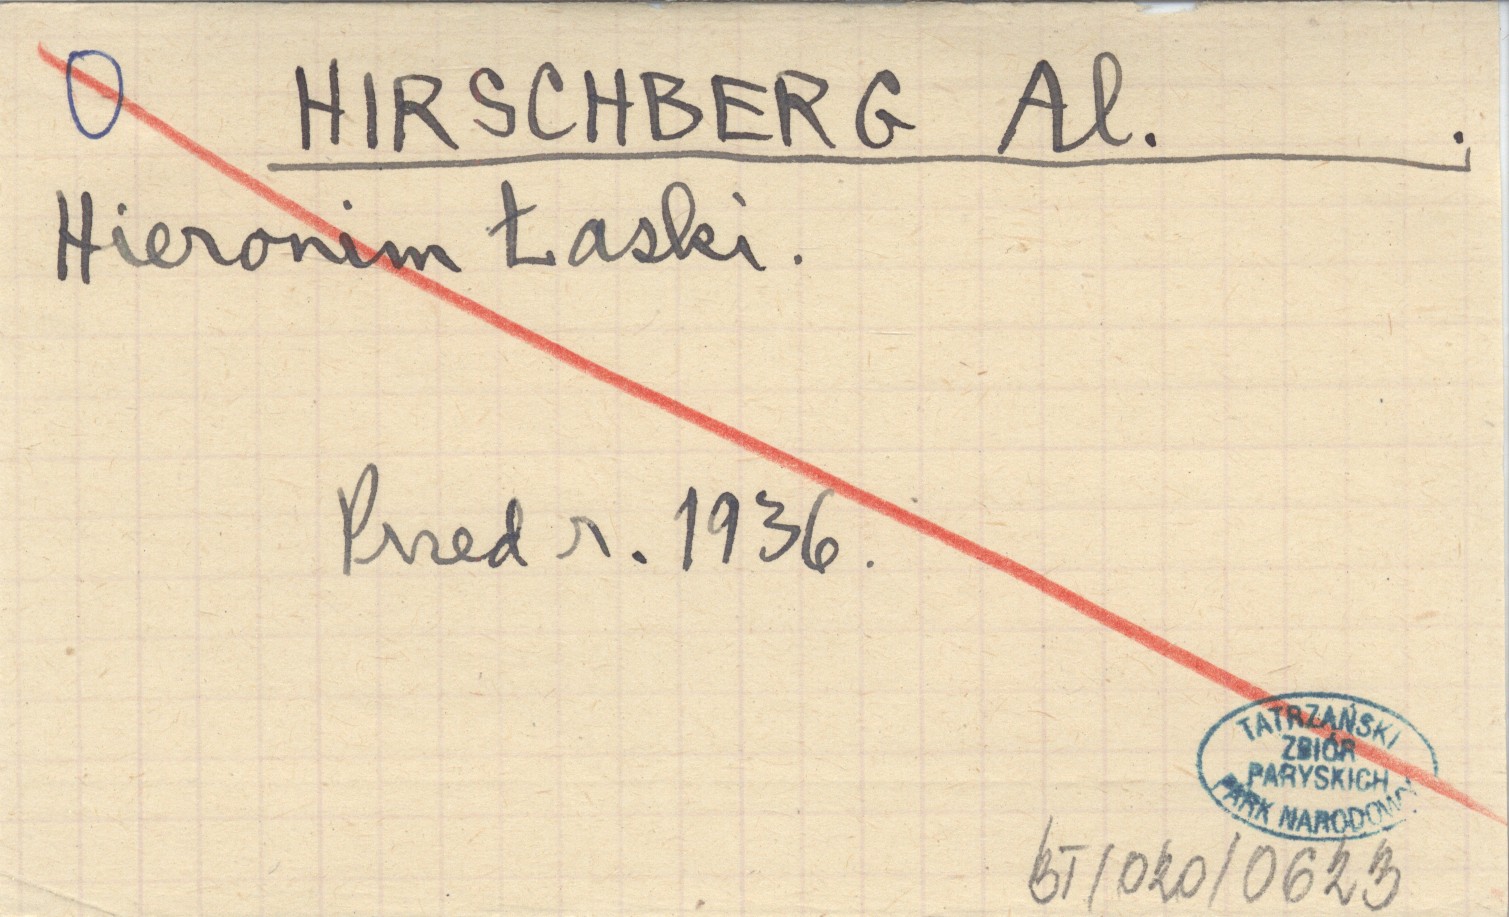 O HIRSCHBERG Al. .
Hieronim Łaski.
Przed r. 1936.
TATRZAŃSKI
ZBIÓR
PARYSKICH
PARK NARODOWY
BT/020/0623